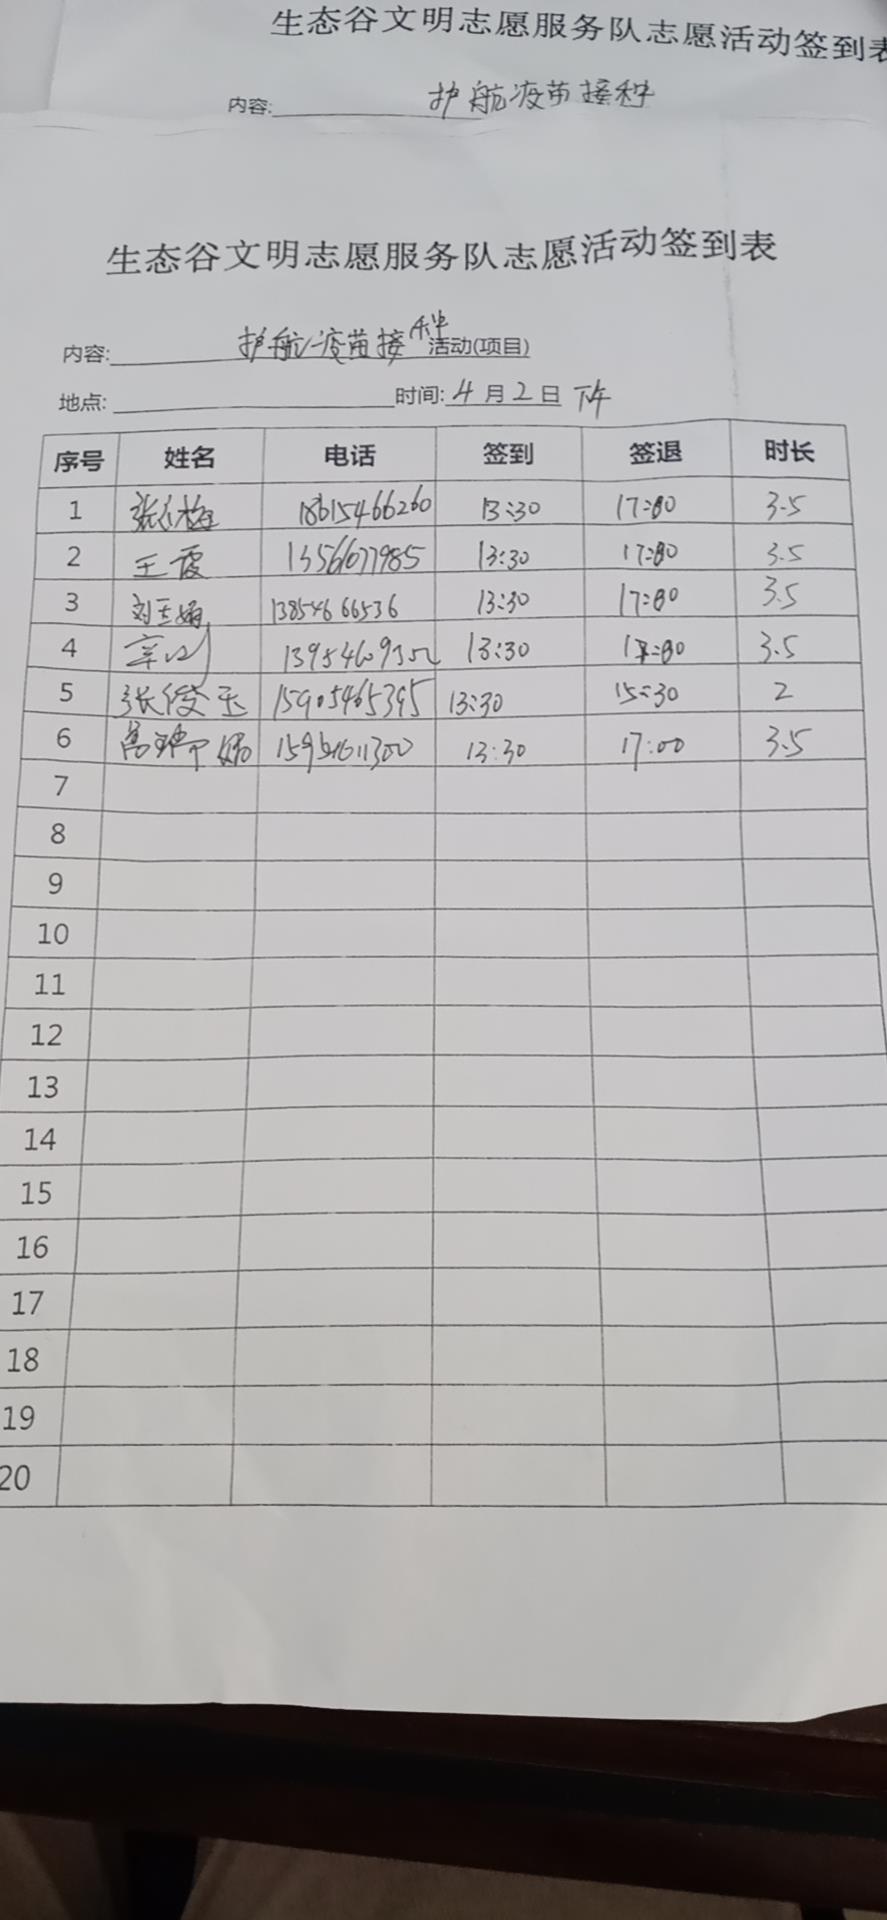 生态谷文明志愿服务队志愿活动签到表
内容: 护航疫苗接种
生态谷文明志愿服务队志愿活动签到表
内容: 护航疫苗接种 活动(项目)
地点: 时间: 4月2日 下午
序号 姓名 电话 签到 签退 时长
1 18615466260 13:30 17:00 3.5
2 王霞 13561077985 13:30 17:00 3.5
3 刘玉娟 13854666536 13:30 17:00 3.5
4 13:30 17:00 3.5
5 张俊玉 15905465395 13:30 15:30 2
6 13:30 17:00 3.5
7
8
9
10
11
12
13
14
15
16
17
18
19
20